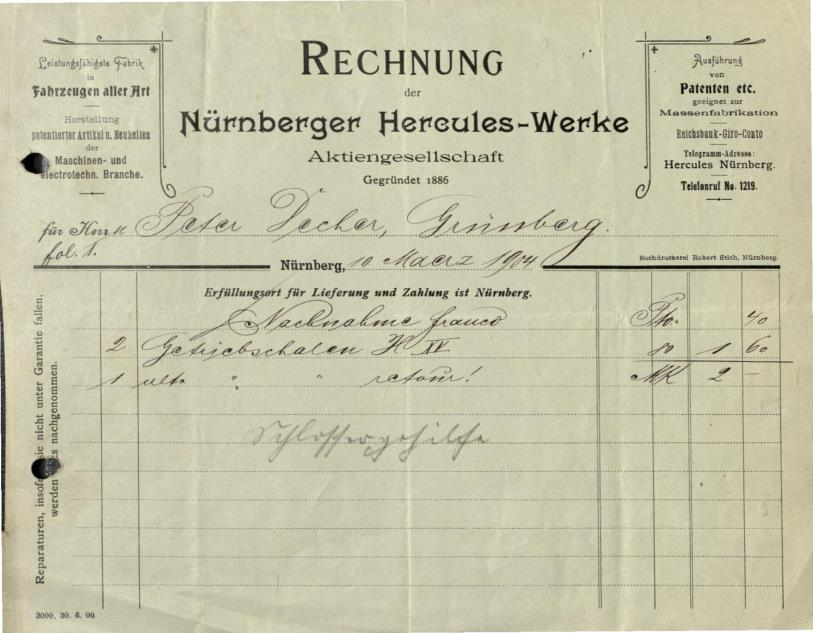 Leistungsfähigste Fabrik
in
Fahrzeugen aller Art
Herstellung
patentierter Artikel u. Neuheiten
der
Maschinen- und
electrotechn. Branche.
RECHNUNG
der
Nürnberger Hercules-Werke
Aktiengesellschaft
Gegründet 1886
Ausführung
von
Patenten etc.
geeignet zur
Massenfabrikation
Reichsbank-Giro-Conto
Telegramm-Adresse:
Hercules Nürnberg.
Telefonruf No. 1219.
für Herrn Peter Decher, Grünberg.
fol. 1.
Nürnberg, 10 Maerz 1904
Buchdruckerei Robert Stich, Nürnberg.
Erfüllungsort für Lieferung und Zahlung ist Nürnberg.
Nachnahme franco Pto. 40
2 Getriebschalen H XV 80 1 60
1 alte " " retour! MK 2 –
Schlossergehilfe
Reparaturen, insofern sie nicht unter Garantie fallen,
werden stets nachgenommen.
3000, 30. 6. 00.